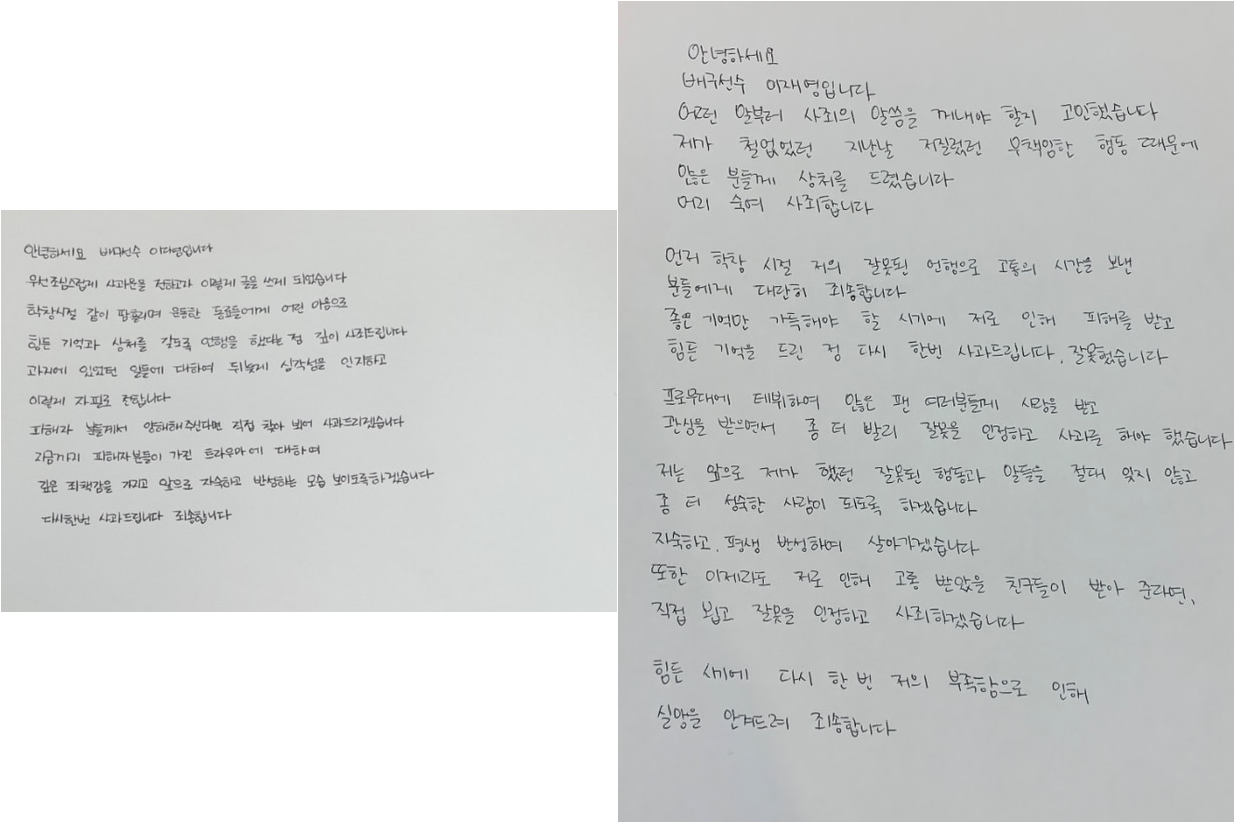 안녕하세요 배구선수 이다영입니다
우선 조심스럽게 사과문을 전하고자 이렇게 글을 쓰게 되었습니다
학창시절 같이 땀흘리며 운동한 동료들에게 어린 마음으로
힘든 기억과 상처를 갖도록 언행을 했다는 점 깊이 사죄드립니다
과거에 있었던 일들에 대하여 뒤늦게 심각성을 인지하고
이렇게 자필로 전합니다
피해자 분들께서 양해해주신다면 직접 찾아 뵈어 사과드리겠습니다
지금까지 피해자분들이 가진 트라우마에 대하여
깊은 죄책감을 가지고 앞으로 자숙하고 반성하는 모습 보이도록하겠습니다
다시한번 사과드립니다 죄송합니다
안녕하세요
배구선수 이재영입니다
어떤 말부터 사죄의 말씀을 꺼내야 할지 고민했습니다
제가 철없었던 지난날 저질렀던 무책임한 행동 때문에
많은 분들께 상처를 드렸습니다
머리 숙여 사죄합니다
먼저 학창 시절 저의 잘못된 언행으로 고통의 시간을 보낸
분들에게 대단히 죄송합니다
좋은 기억만 가득해야 할 시기에 저로 인해 피해를 받고
힘든 기억을 드린 점 다시 한번 사과드립니다. 잘못했습니다
프로무대에 데뷔하여 많은 팬 여러분들께 사랑을 받고
관심을 받으면서 좀 더 빨리 잘못을 인정하고 사과를 해야 했습니다
저는 앞으로 제가 했던 잘못된 행동과 말들을 절대 잊지 않고
좀 더 성숙한 사람이 되도록 하겠습니다
자숙하고, 평생 반성하며 살아가겠습니다
또한 이제라도 저로 인해 고통 받았을 친구들이 받아 준다면,
직접 뵙고 잘못을 인정하고 사죄하겠습니다
힘든 시기에 다시 한 번 저의 부족함으로 인해
실망을 안겨드려 죄송합니다